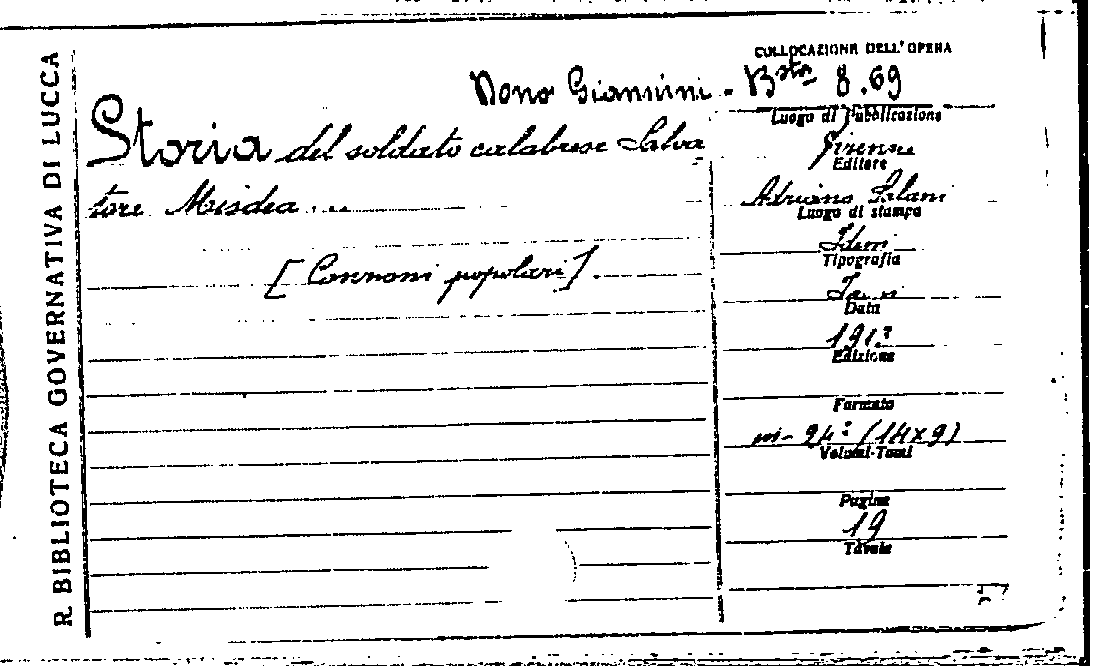 R. BIBLIOTECA GOVERNATIVA DI LUCCA
COLLOCAZIONE DELL'OPERA
Dono Giannini - Bsta 8.69
Storia del soldato calabrese Salva
tore Misdea...
[Canzoni popolari].
Luogo di Pubblicazione
Firenze
Editore
Adriano Salani
Luogo di stampa
Idem
Tipografia
Data
191.?
Edizione
Formato
in-24° (14x9)
Volumi-Tomi
Pagine
19
Tavole